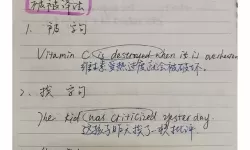 被动译法
1. 被字句
Vitamin C is destroyed when it is overheated
维生素受热过度就会被破坏.
2. 挨字句
The kid was criticized yesterday
这孩子昨天挨了一顿批评.